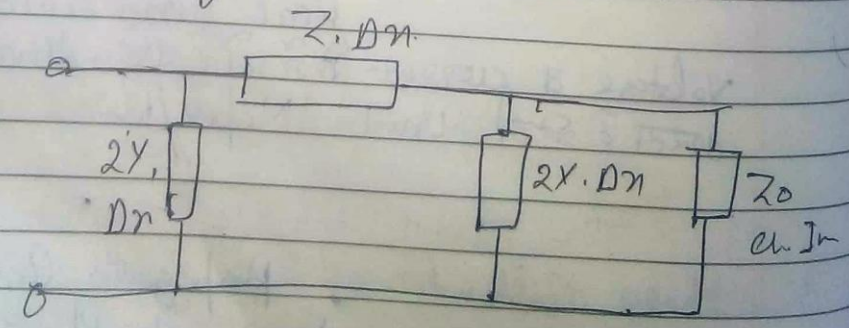 Z. Dx.
2Y,
Dx
2Y. Dx
Z0
ch. Im